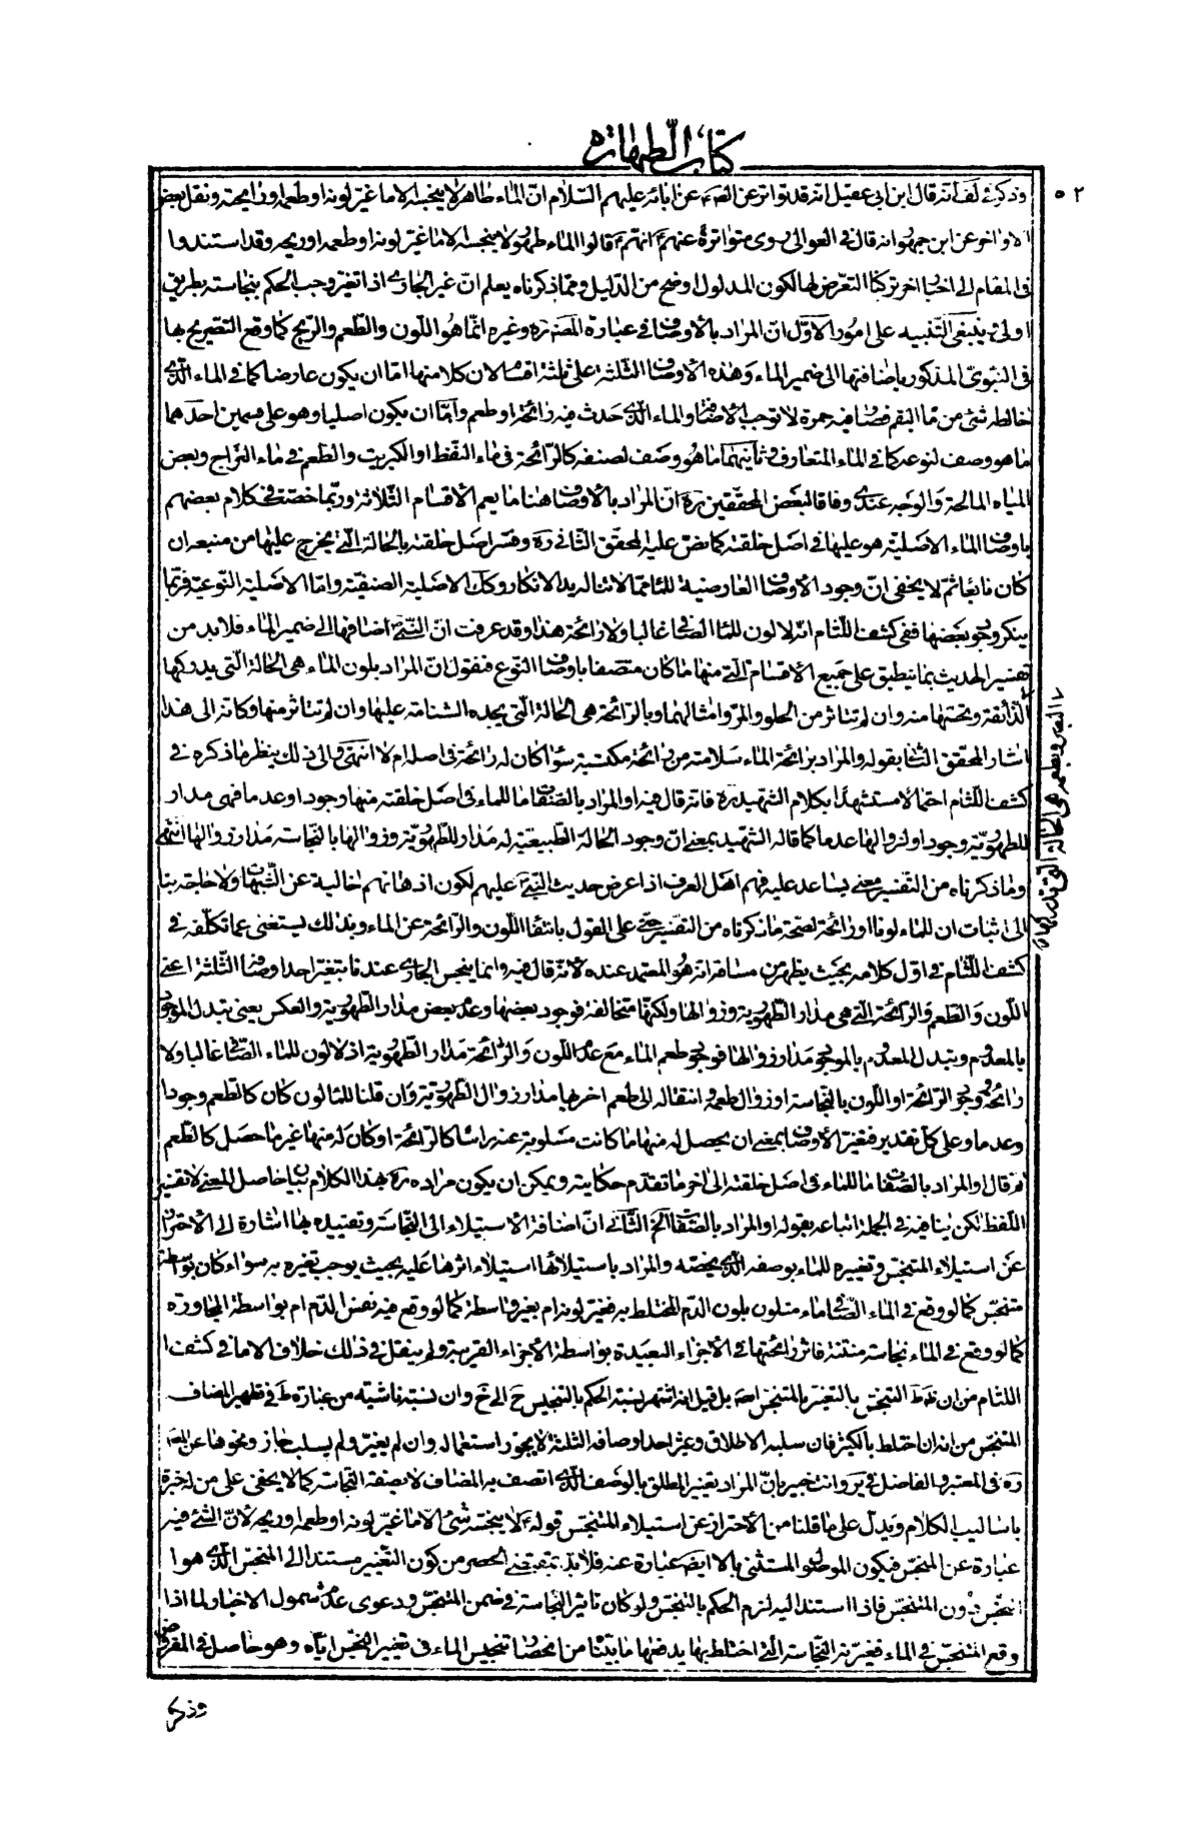 كتاب الطهارة
٥٢
وذكر في لف انه قال ابن ابي عقيل انه قد تواتر عن الصم عن ابائه عليهم السّلام انّ الماء طاهر لا ينجسه الا ما غيّر لونه او طعمه او رايحته ونقل بعض
الاواخر عن ابن جمهور انه قال في العوالي روى متواترة عنهم انهم قالوا الماء طهور لا ينجسه الا ما غيّر لونه او طعمه او ريحه وقد استندوا
في المقام الى اخبار اخر تركنا التعرّض لها لكون المدلول اوضح من الدّليل وممّا ذكرناه يعلم انّ غير الجاري اذا تغير وجب الحكم بنجاسته بطريق
اولى ثم ينبغي التّنبيه على امور الاوّل انّ المراد بالأوصاف في عبارة المصنّف ره وغيره انّما هو اللّون والطّعم والرّيح كما وقع التّصريح بها
في النبويّ المذكور باضافتها الى ضمير الماء وهذه الأوصاف الثّلثة على ثلثة اقسام لان كلا منها امّا ان يكون عارضا كما في الماء الّذي
خالطه شئ من ماء البقم فصار فيه حمرة لا توجب الاضافة والماء الّذي حدث فيه رائحة او طعم وامّا ان يكون اصليا وهو على قسمين احدهما
ما هو وصف لنوعه كما في الماء المتعارف وثانيهما ما هو وصف لصنفه كالرّائحة في ماء النّفط او الكبريت والطّعم في ماء الزّاج وبعض
المياه المالحة والوجه عندي وفاقا لبعض المحقّقين ره انّ المراد بالأوصاف هنا ما يعم الأقسام الثّلاثة وربّما خصّت في كلام بعضهم
باوصاف الماء الاصليّة هو عليها في اصل خلقته كما نصّ عليه المحقّق الثّاني ره وفسّر اصل خلقته بالحالة الّتي يخرج عليها من منبعه ان
كان نابعا ثم لا يخفى انّ وجود الأوصاف العارضية للماء ممّا لا تناله يد الانكار وكك الاصلية الصنفيّة وامّا الاصليّة النّوعية فربّما
ينكر وجود بعضها ففي كشف اللّثام انّه لا لون للماء الصّافي غالبا ولا رائحة هذا وقد عرفت انّ النّبيّ اضافها الى ضمير الماء فلا بد من
تفسير الحديث بما ينطبق على جميع الاقسام الّتي منها ما كان متّصفا باوصاف النّوع فنقول انّ المراد بلون الماء هي الحالة الّتي يدركها
البصر وبطعمه هي الحالة الّتي تدركها
الذّائقة وتحسّها منه وان لم تتاثر من الحلو والمرّ وامثالهما وبالرّائحة هي الحالة الّتي يجده الشّامّة عليها وان لم تتاثر منها وكانّه الى هذا
اشار المحقق الثّاني بقوله والمراد برائحة الماء سلامته من رائحة مكتسبة سواء كان له رائحة في اصله ام لا انتهى والى ذلك ينظر ما ذكره في
كشف اللّثام احتمالا مستشهدا بكلام الشّهيد ره فانّه قال فيه او المراد بالصّفات ما للماء في اصل خلقته منها وجودا وعدما فهي مدار
للطهوريّة وجودا ولزوالها عدما كما قاله الشّهيد بمعنى انّ وجود الحالة الطّبيعيّة له مدار للطّهوريّة وزوالها بالنّجاسة مدار زوالها انتهى
وما ذكرناه من التّفسير معنى يساعد عليه فهم اهل العرف اذا عرض حديث النّبيّ عليهم لكون اذهانهم خالية عن الشّبهات ولا حاجة بنا
الى اثبات ان للماء لونا او رائحة لصحة ما ذكرناه من التّفسير حتّى على القول بانتفاء اللّون والرّائحة عن الماء وبذلك يستغنى عما تكلّفه في
كشف اللّثام في اوّل كلامه بحيث يظهر من مساقه انّه هو المعتمد عنده لانّه قال فيه وانما ينجس الجاري عندنا بتغيّر احد اوصافه الثّلثة اعني
اللّون والطّعم والرّائحة الّتي هي مدار الطّهوريّة وزوالها ولكنّها متخالفة فوجود بعضها وعدم بعض مدار الطّهوريّة والعكس يعني تبدل الموجود
بالمعدوم وتبدل المعدوم بالموجود مدار زوالها فوجود طعم الماء مع عدم اللّون والرّائحة مدار الطّهوريّة اذ لا لون للماء الصّافي غالبا ولا
رائحة ووجود الرّائحة او اللّون بالنّجاسة او زوال طعمه وانتقاله الى طعم اخر بها مدار زوال الطّهوريّة وان قلنا للماء لون كان كالطّعم وجودا
وعدما وعلى كلّ تقدير فتغيّر الأوصاف بمعنى ان يحصل له منها ما كانت مسلوبة عنه راسا كالرّائحة او كان له منها غير ما حصل كالطّعم
ثم قال او المراد بالصّفات ما للماء في اصل خلقته الى اخر ما تقدّم حكايته ويمكن ان يكون مراده ره بهذا الكلام بيانا لحاصل المعنى لا تفسير
اللّفظ لكن ينافيه في الجملة اتباعه بقوله او المراد بالصّفات الخ الثّاني انّ اضافة الاستيلاء الى النّجاسة وتقييده بها اشارة الى الاحتراز
عن استيلاء المتنجّس وتغييره للماء بوصفه الّذي يخصّه والمراد باستيلائها استيلاء اثرها عليه بحيث يوجب تغيره به سواء كان بواسطة
متنجّس كما لو وقع في الماء الصّافي ماء متلون بلون الدّم المختلط به فغيّر لونه ام بغير واسطة كما لو وقع فيه نفس الدّم ام بواسطة المجاورة
كما لو وقع في الماء نجاسة منتنة فاثر رائحتها في الأجزاء البعيدة بواسطة الأجزاء القريبة ولم ينقل في ذلك خلاف الا ما في كشف
اللثام من ان ظط التنجّس بالتغيّر بالمتنجّس ايضا بل قيل انه اشتهر نسبة الحكم بالتنجيس ح الى خ وان نسبته ناشية من عبارة ط في تطهير المضاف
المتنجّس من انه ان اختلط بالكثير فان سلبه الاطلاق وغيّر احد اوصافه الثّلثة لا يجوز استعماله وان لم يغيّر ولم يسلب جاز ونحوها عن المصنّف
ره في المعتبر والفاضل في ير وانت خبير بانّ المراد تغيير المطلق بالوصف الّذي اتصف به المضاف لا بصفة النّجاسة كما لا يخفى على من له خبرة
باساليب الكلام ويدلّ على ما قلنا من الأحتراز عن استيلاء المتنجّس قوله لا ينجّسه شئ الا ما غيّر لونه او طعمه او ريحه لأنّ الشّئ فيه
عبارة عن المنجّس فيكون الموصول المستثنى بالا ايضا عبارة عنه فلا بد بمقتضى الحصر من كون التّغيير مستندا الى المنجّس الّذي هو
النجس دون المتنجّس فاذا استند اليه لزم الحكم بالتنجّس ولو كان تاثير النّجاسة في ضمن المتنجّس ودعوى عدم شمول الاخبار لما اذا
وقع المتنجّس في الماء فغيّرته النّجاسة الّتي اختلط بها يدفعها ما بيّنّا من انحصار تنجيس الماء في تغيير النّجس ايّاه وهو حاصل في المفروض
وذكر